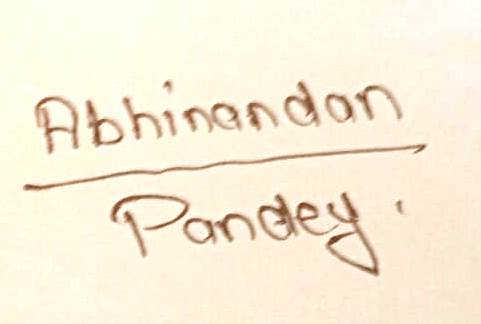 Abhinandan
Pandey.